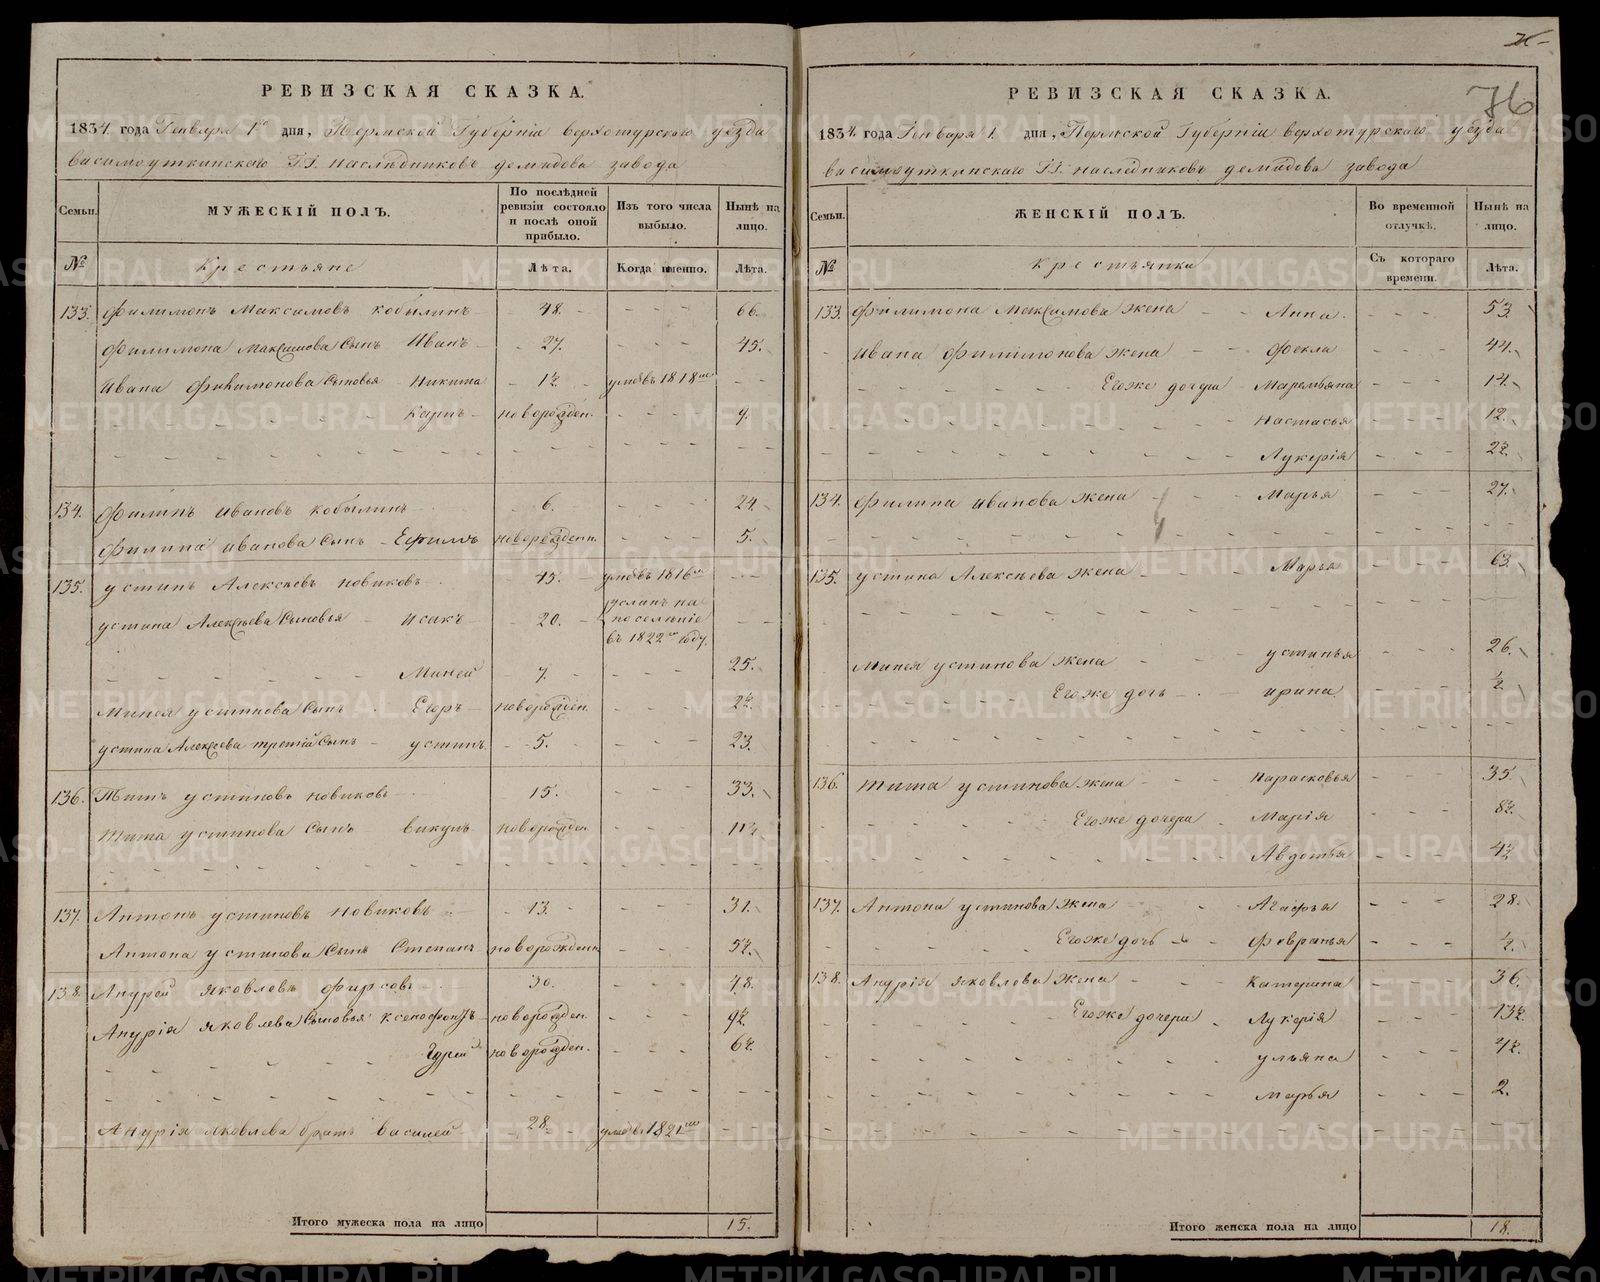 76
РЕВИЗСКАЯ СКАЗКА.
1834. года Генваря 1го дня, Пермской Губернiи верхотурского уезда
висимоуткинского Г.г. наследниковъ демидова завода
Семьи. МУЖЕСКIЙ ПОЛЪ. По послѣдней ревизiи состояло и послѣ оной прибыло. Изъ того числа выбыло. Нынѣ на лицо.
№ Крестьяне Лѣта. Когда именно. Лѣта.
133. Филимонъ Максимовъ кобылинъ 48. 66.
Филимона Максимова Сынъ Иванъ 27. 45.
Ивана Филимонова Сыновья Никита 1½ умѣ въ 1818мъ
Карпъ новорожден. 9.
134. Филипъ Ивановъ кобылинъ 6. 24.
Филипа иванова Сынъ Ефимъ новорожден. 5.
135. устинъ Алексѣевъ новиковъ 45. умѣ въ 1816м
устина Алексѣева Сыновья исакъ 20. усланъ на поселенiе въ 1822м году.
Миней 7. 25.
Минея устинова Сынъ Егоръ новорожден. 2½.
устина Алексѣева третiй Сынъ устинъ 5. 23.
136. Титъ устиновъ новиковъ 15. 33.
Тита устинова Сынъ викулъ новорожден. 11½
137. Антонъ устиновъ новиковъ 13. 31.
Антона устинова Сынъ Степанъ новорожден. 5½.
138. Анурей яковлевъ фирсовъ 30. 48.
Анурiя яковлева Сыновья ксенофонтъ новорожден. 9½.
Гурей новорожден. 6½.
Анурiя яковлева братъ василей 28. умѣ въ 1821мъ
Итого мужеска пола на лицо 15.
РЕВИЗСКАЯ СКАЗКА.
1834. года Генваря 1. дня, Пермской Губернiи верхотурскаго уезда
висимоуткинскаго Г.г. наследниковъ демидова завода
Семьи. ЖЕНСКIЙ ПОЛЪ. Во временной отлучкѣ. Нынѣ на лицо.
№ крестьянки Съ котораго времени. Лѣта.
133. Филимона Максимова жена Анна. 53.
Ивана Филимонова жена Фекла 44.
Егоже дочери Маремьяна 14.
Настасья 12.
Лукерiя 2½.
134. Филипа иванова жена Марья 27.
135. устина Алексѣева жена Марья 63.
Минея устинова жена устинья 26.
Егоже дочь ирина ½.
136. Тита устинова жена Парасковья 35.
Егоже дочери Марiя 8½.
Авдотья 4½
137. Антона устинова жена Агафья 28.
Егоже дочь Февранья ½.
138. Анурiя яковлева жена Катерина 36.
Егоже дочери Лукерiя 13½.
ульяна 4½.
Марья 2.
Итого женска пола на лицо 18.
METRIKI.GASO-URAL.RU